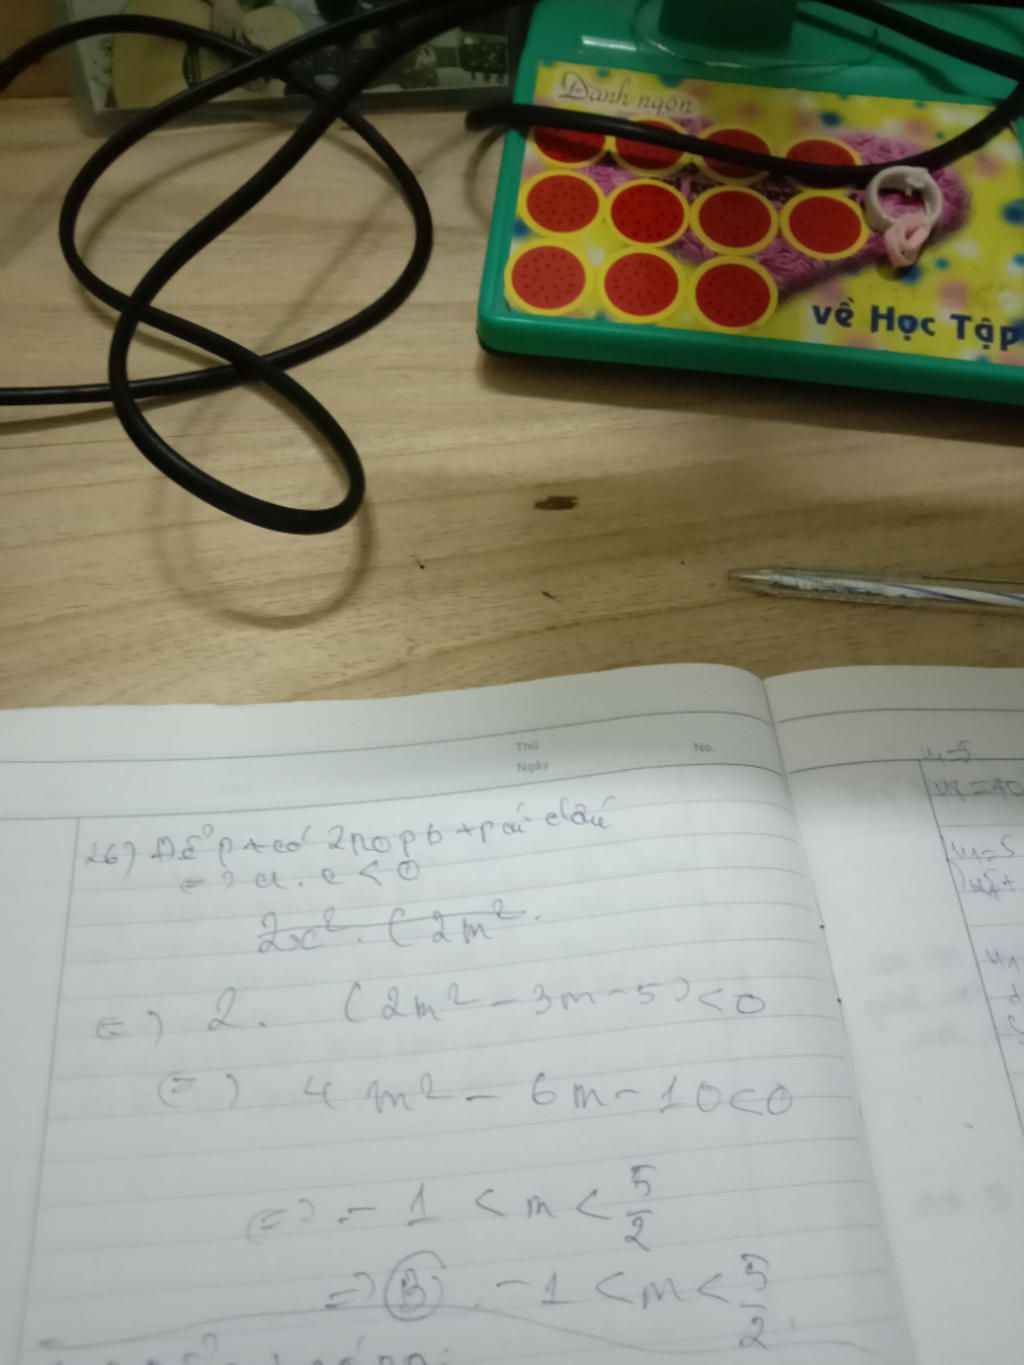 Danh ngôn
về Học Tập
Thứ
Ngày
No.
26) Để pt có 2 no pb trái dấu
=> a.c < 0
2x². (2m².
(=) 2. (2m² - 3m - 5) < 0
(=) 4m² - 6m - 10 < 0
(=) - 1 < m < 5/2
=> B. - 1 < m < 5/2
u₁=5